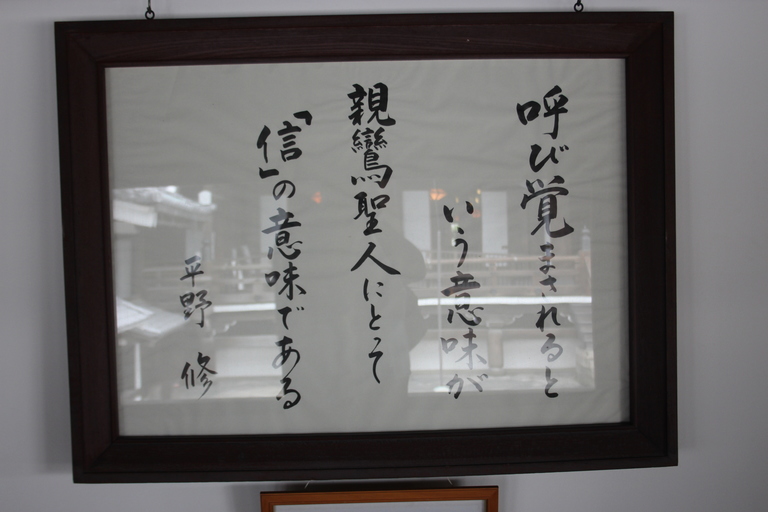 呼び覚まされると
いう意味が
親鸞聖人にとって
「信」の意味である
平野 修